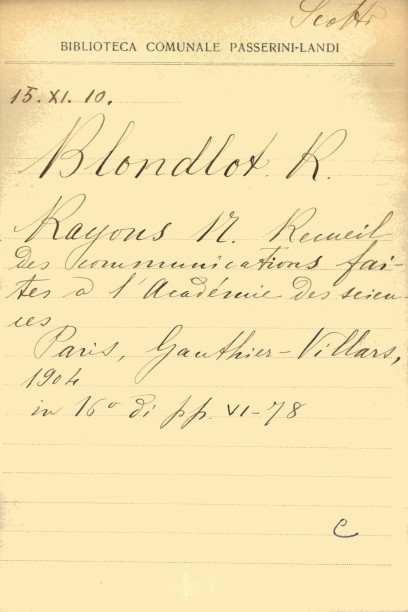 Scotti
BIBLIOTECA COMUNALE PASSERINI-LANDI
15. XI. 10.
Blondlot. R.
Rayons N. Recueil
des communications fai-
tes a l'Académie des scien-
ces
Paris, Gauthier-Villars,
1904
in 16° di pp. VI-78
C